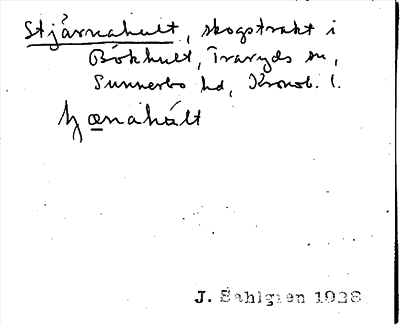 Stjärnahult, skogstrakt i
Bökhult, Traryds sn,
Sunnerbo hd, Kronob. l.
ꞕænahúlt
J. Sahlgren 1928